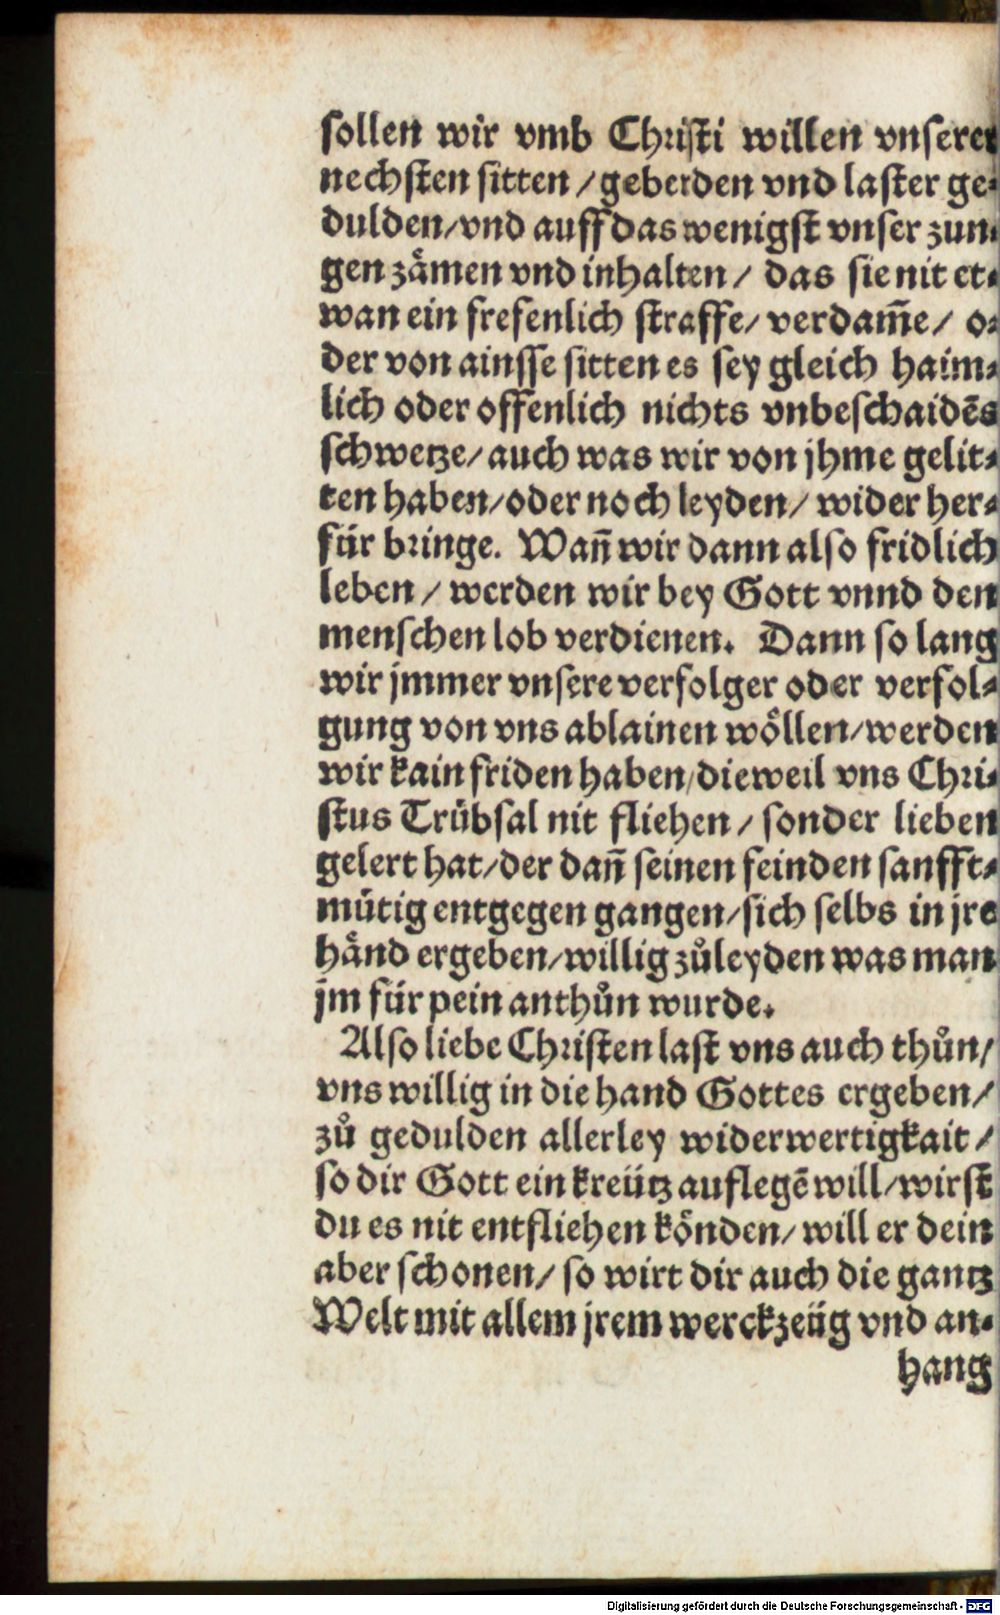 sollen wir vmb Christi willen vnserer
nechsten sitten / geberden vnd laster ge⸗
dulden/vnd auff das wenigst vnser zun⸗
gen zämen vnd inhalten / das sie nit et⸗
wan ein frefenlich straffe/ verdam̃e/ o⸗
der von ainsse sitten es sey gleich haim⸗
lich oder offenlich nichts vnbeschaidẽs
schwetze/ auch was wir von jhme gelit⸗
ten haben/oder noch leyden/ wider her⸗
für bringe. Wañ wir dann also fridlich
leben / werden wir bey Gott vnnd den
menschen lob verdienen. Dann so lang
wir jmmer vnsere verfolger oder verfol⸗
gung von vns ablainen wöllen/werden
wir kain friden haben/dieweil vns Chri⸗
stus Trübsal nit fliehen / sonder lieben
gelert hat/der dañ seinen feinden sanfft⸗
mütig entgegen gangen/sich selbs in jre
händ ergeben/willig zůleyden was man
jm für pein anthůn wurde.
Also liebe Christen last vns auch thůn/
vns willig in die hand Gottes ergeben/
zů gedulden allerley widerwertigkait /
so dir Gott ein kreütz auflegẽ will/wirst
du es nit entfliehen könden/ will er dein
aber schonen/ so wirt dir auch die gantz
Welt mit allem jrem werckzeüg vnd an⸗
hang
Digitalisierung gefördert durch die Deutsche Forschungsgemeinschaft - DFG